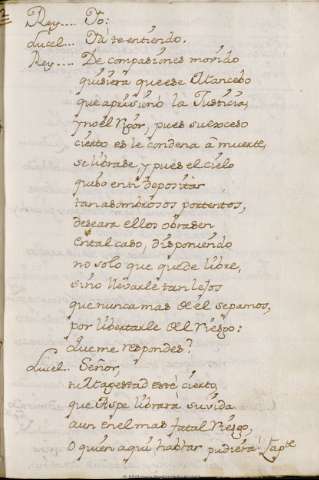 Rey.... Yo:
Lucel... Ya te entiendo.
Rey.... De compasiones movido
quisiera que ese Mancebo
que aprisionò la Justicia,
y no el Rigor, pues su exceso
cierto es le condena à muerte,
se librase, y pues el cielo
quiso en ti depositàr
tan asombrosos portentos,
deseara ellos obrasen
en tal caso, disponiendo
no solo que quede libre,
sino llevarle tan lejos
que nunca mas de èl sepamos,
por libertarle del Riesgo:
Que me respondes?
Lucel... Señor,
tu Magestad estè cierto,
que librarà su vida
aun en el mas fatal Riesgo,
O quien aquì hablar pudiera! Ap.te